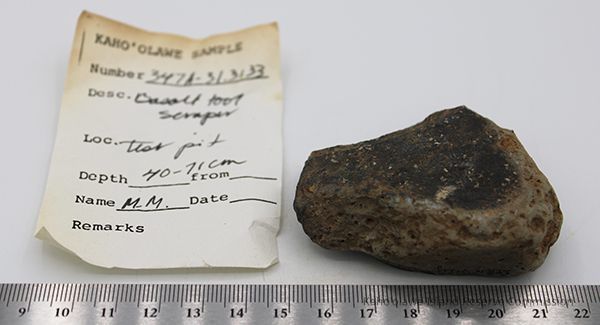 KAHO'OLAWE SAMPLE
Number 347A-S1.3133
Desc. Basalt tool
scraper
Loc. Test pit
Depth 40-71cm from
Name M.M. Date
Remarks
Kaho'olawe Island Reserve Commission
9 10 11 12 13 14 15 16 17 18 19 20 21 22